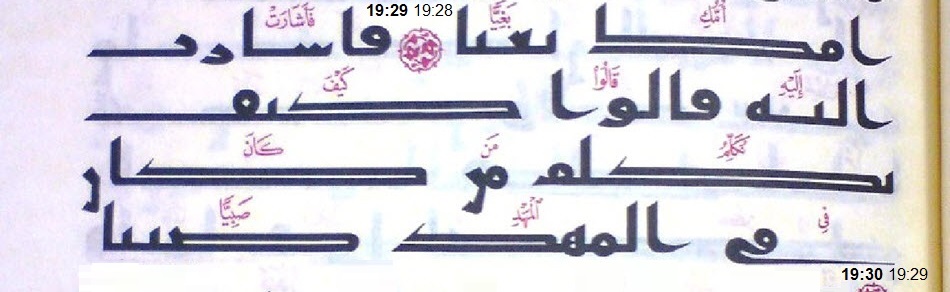 19:29 19:28
أُمُّكِ بَغِيًّا فَأَشَارَتْ
امك بغيا فاسارت
إِلَيْهِ قَالُوا۟ كَيْفَ
اليه قالوا كيف
نُكَلِّمُ مَن كَانَ
نكلم من كان
فِى ٱلْمَهْدِ صَبِيًّا
في المهد صبيا
19:30 19:29